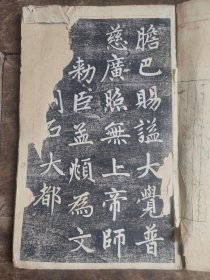 膽巴賜謚大覺普
慈廣照無上帝師
勅臣孟頫為文
刻石大都